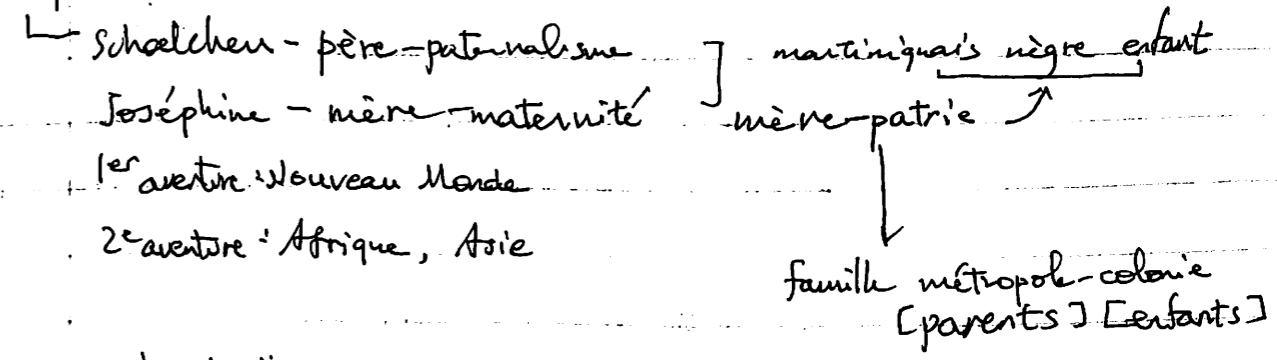 Schœlcher - père - paternalisme ] martiniquais nègre enfant
Joséphine - mère - maternité mère-patrie
1er aventure : Nouveau Monde
2e aventure : Afrique, Asie
famille métropole-colonie
[parents] [enfants]